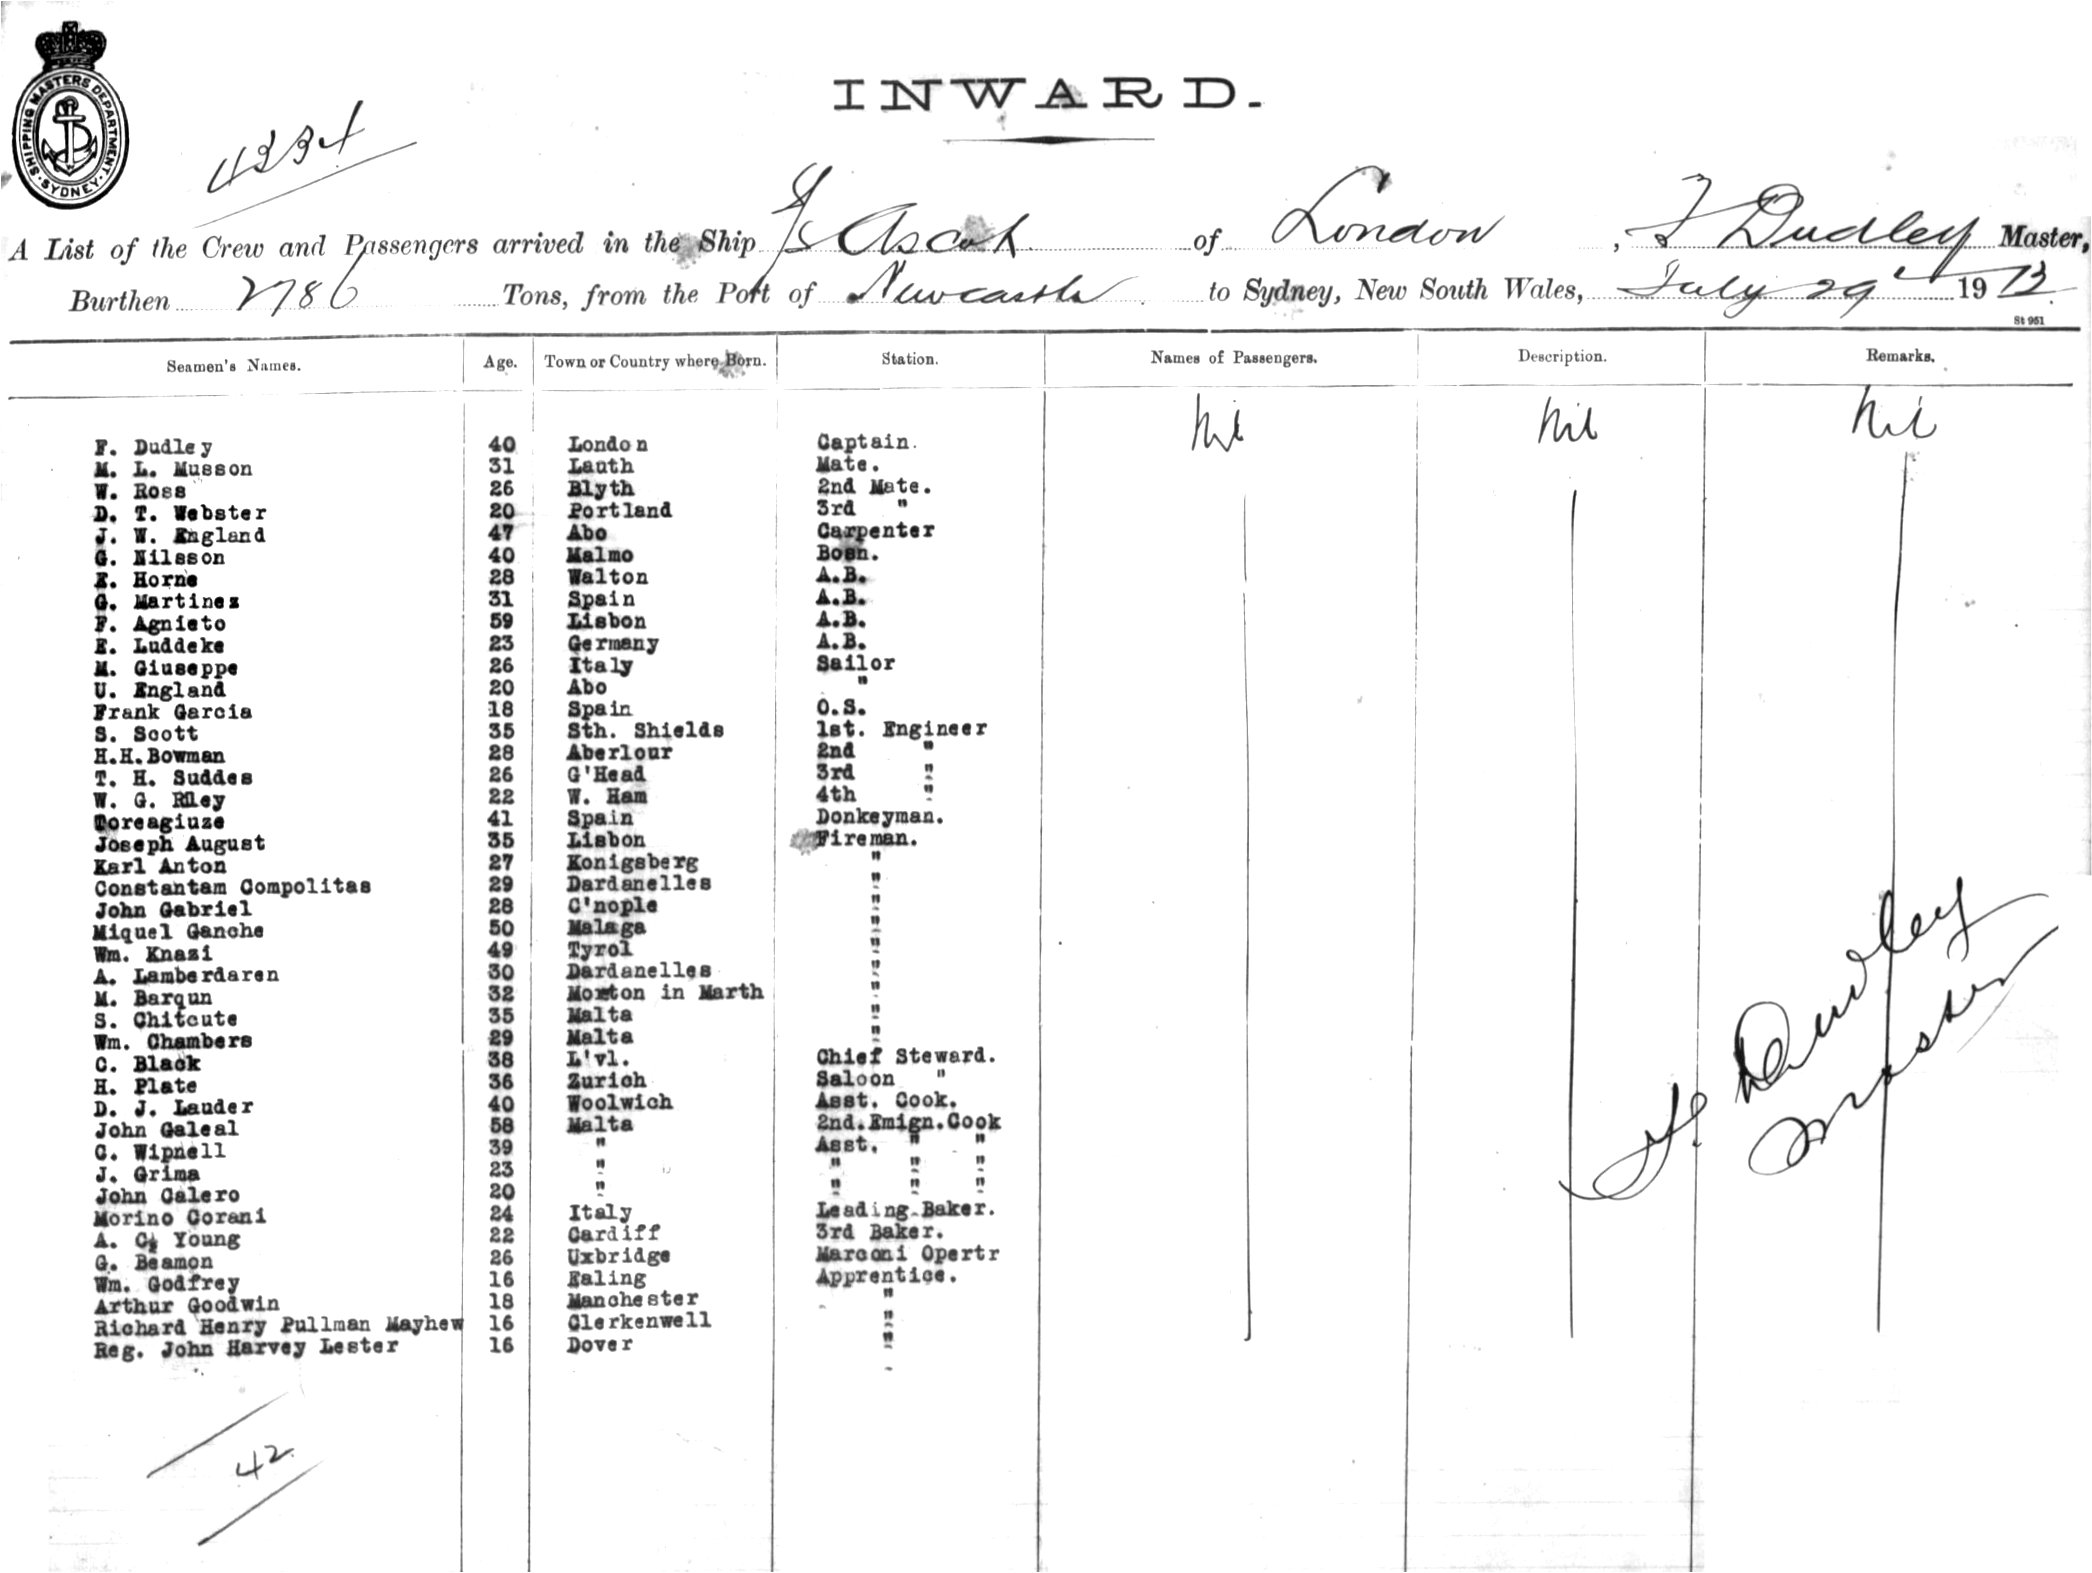 SHIPPING MASTERS DEPARTMENT. SYDNEY.
INWARD.
4334
A List of the Crew and Passengers arrived in the Ship S/S Ascot of London, F Dudley Master,
Burthen 2786 Tons, from the Port of Newcastle to Sydney, New South Wales, July 29th 1913
St 951
Seamen's Names. Age. Town or Country where Born. Station. Names of Passengers. Description. Remarks.
Nil Nil Nil
F. Dudley 40 London Captain.
M. L. Musson 31 Lauth Mate.
W. Ross 26 Blyth 2nd Mate.
D. T. Webster 20 Portland 3rd "
J. W. England 47 Abo Carpenter
G. Nilsson 40 Malmo Bosn.
E. Horne 28 Walton A.B.
G. Martinez 31 Spain A.B.
F. Agnieto 59 Lisbon A.B.
E. Luddeke 23 Germany A.B.
M. Giuseppe 26 Italy Sailor
U. England 20 Abo "
Frank Garcia 18 Spain O.S.
S. Scott 35 Sth. Shields 1st. Engineer
H.H.Bowman 28 Aberlour 2nd "
T. H. Suddes 26 G'Head 3rd "
W. G. Riley 22 W. Ham 4th "
Toreagiuze 41 Spain Donkeyman.
Joseph August 35 Lisbon Fireman.
Karl Anton 27 Konigsberg "
Constantam Compolitas 29 Dardanelles "
John Gabriel 28 C'nople "
Miquel Ganche 50 Malaga "
Wm. Knazi 49 Tyrol "
A. Lamberdaren 30 Dardanelles "
M. Barqun 32 Morton in Marth "
S. Chitcute 35 Malta "
Wm. Chambers 29 Malta "
C. Black 38 L'vl. Chief Steward.
H. Plate 36 Zurich Saloon "
D. J. Lauder 40 Woolwich Asst. Cook.
John Galeal 58 Malta 2nd.Emign.Cook
C. Wipnell 39 " Asst. " "
J. Grima 23 " " " "
John Calero 20 " " " "
Morino Corani 24 Italy Leading Baker.
A. C. Young 22 Cardiff 3rd Baker.
G. Beamon 26 Uxbridge Marconi Opertr
Wm. Godfrey 16 Ealing Apprentice.
Arthur Goodwin 18 Manchester "
Richard Henry Pullman Mayhew 16 Clerkenwell "
Reg. John Harvey Lester 16 Dover "
F Dudley
Master
42